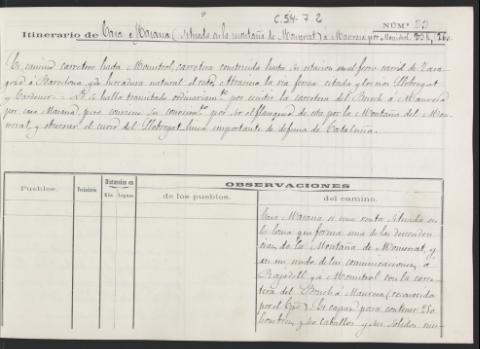 C.54-7 2
NÚM.º 33
Itinerario de Casa Masana (situada en la montaña de Monserrat) á Manresa por Monistrol. 23 k,
Es camino carretero hasta Monistrol, carretera construida hasta su estacion en el ferro carril de Zara
goza á Barcelona, y de herradura natural el resto. Atraviesa la via ferrea citada y los rios Llobregat
y Cardoner. No se halla transitado ordinariam.te por existir la carretera del Bruch á Manresa
por casa Masana, pero conviene su conocim.to por ser el flanqueo de esta por la Montaña del Mon
serrat, y observar el curso del Llobregat, linea importante de defensa de Cataluña.
Pueblos.
Vecindario
Distancias en
Kils. Leguas
OBSERVACIONES
de los pueblos.
del camino.
Casa Masana es una venta situada en
la loma que forma una de las descenden
cias de la Montaña de Monserrat, y
en un nudo de las comunicaciones á
Rajadell y á Monistrol con la carre
tera del Bruch á Manresa (reconocido
por el Cpo). Es capaz para contener 250
hombres, y 80 caballos y sus solidos mu